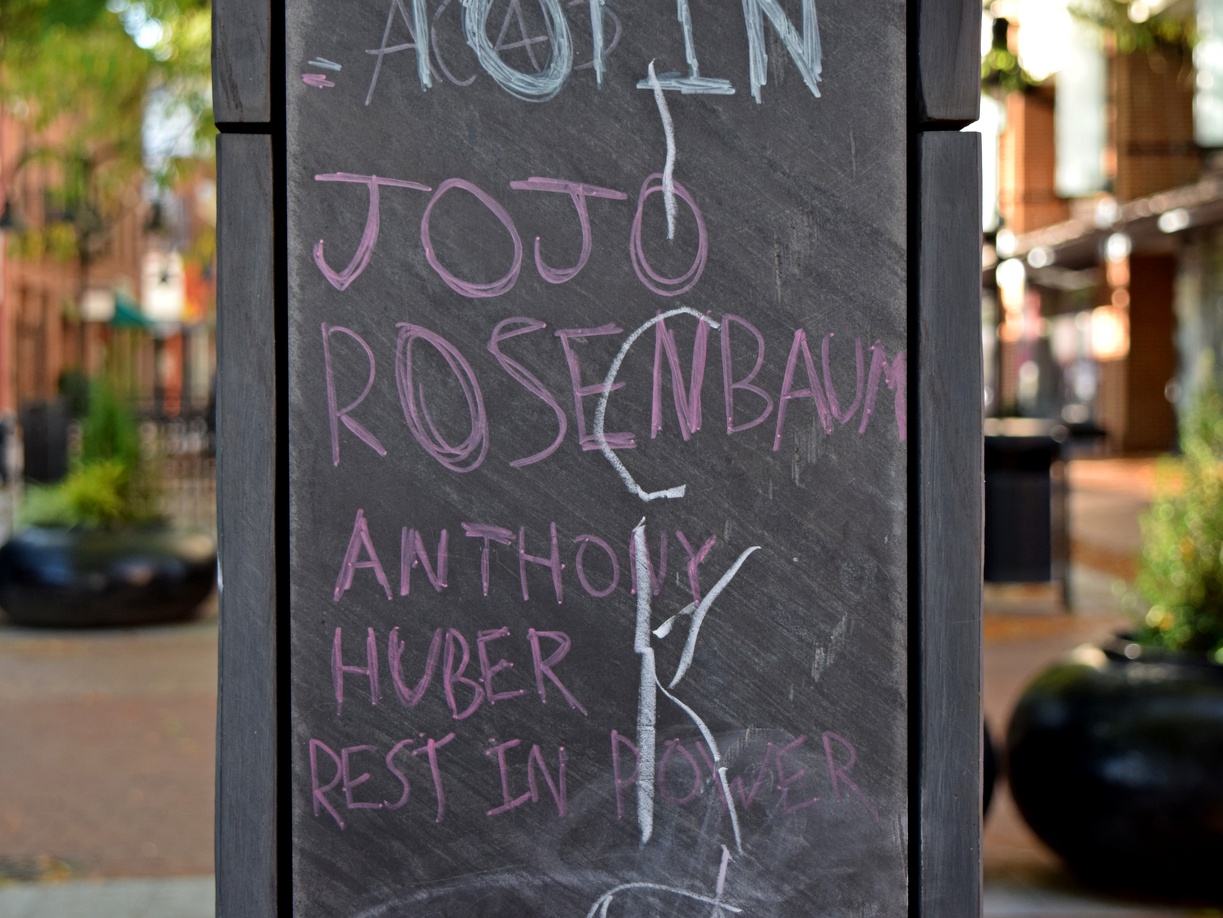 ACAB
JOJO
ROSENBAUM
ANTHONY
HUBER
REST IN POWER